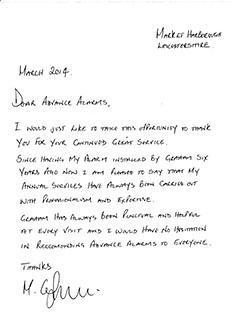 Market Harborough
Leicestershire
March 2014.
Dear Advance Alarms,
I would just like to take this opportunity to thank
you for your continued great service.
Since having my alarm installed by Graham six
years ago now I am pleased to say that my
annual services have always been carried out
with professionalism and expertise.
Graham has always been punctual and helpful
at every visit and I would have no hesitation
in reccomending Advance Alarms to everyone.
Thanks
M.